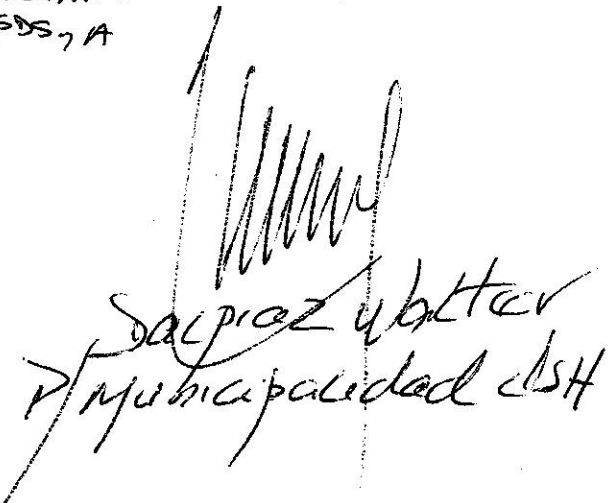 SDS y A
Dalpiaz Walter
P/ Municipalidad USH